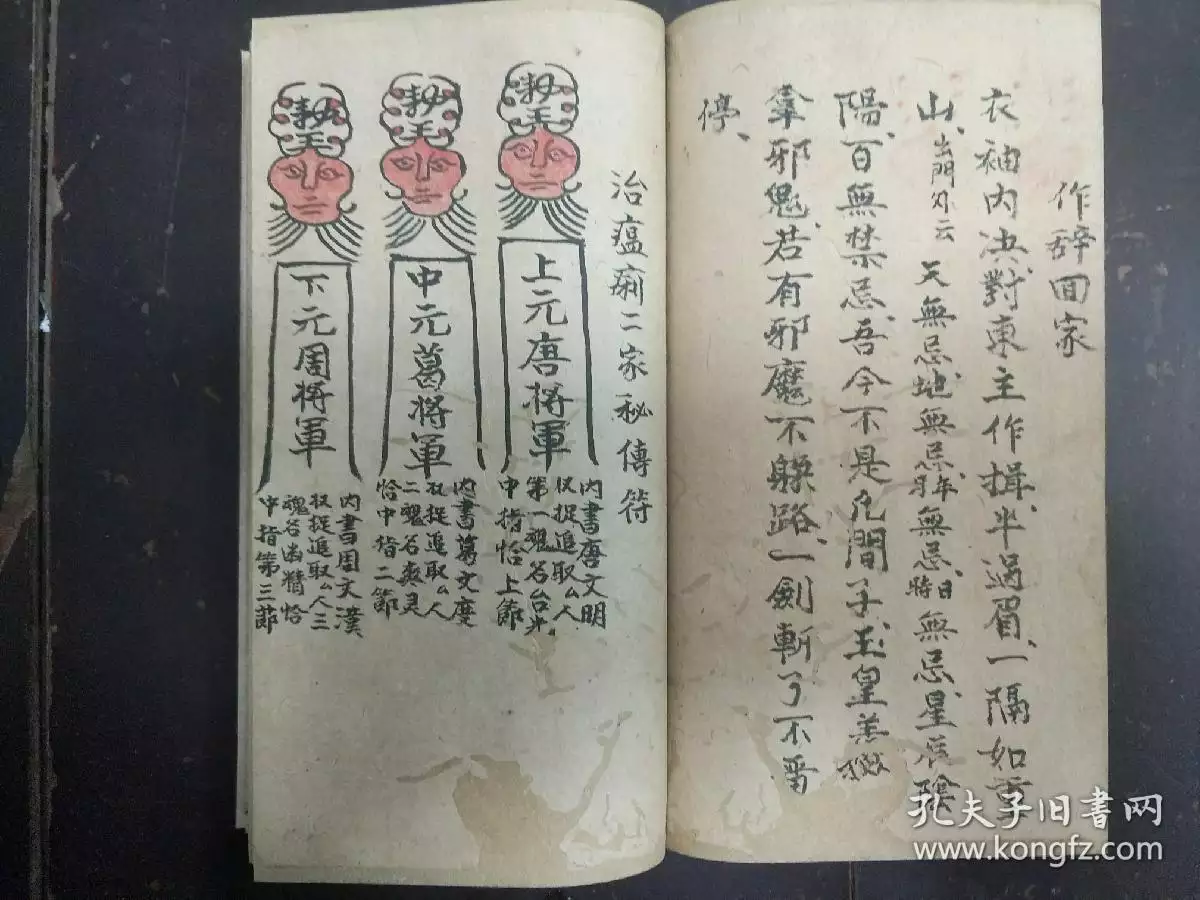 作辞回家
衣袖内决對東主作揖、半過眉、一隔如重
山、出門外云 天無忌、地無忌、年月無忌、日時無忌、星辰陰
陽、百無禁忌、吾今不是凡間子、玉皇差
拿邪鬼、若有邪魔不躱路、一劍斬了不畱
停、
治瘟痢二家秘傳符
勅
王
上元唐將軍
内書唐文明
収捉追取厶人
第一魂名台光
中指恰上節
勅
王
中元葛將軍
内書葛文度
収捉追取厶人
二魂名爽灵
恰中指二節
勅
王
下元周將軍
内書周文漢
収捉追取厶人三
魂名幽精恰
中指第三節
孔夫子旧书网
www.kongfz.com